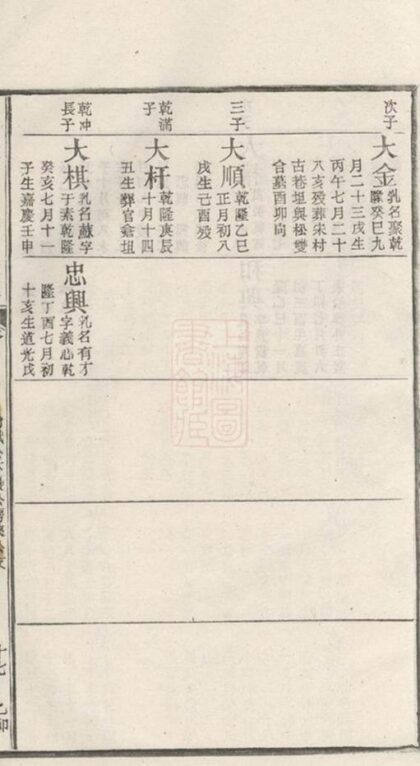 次子
大金
乳名聚乾
隆癸巳九
月二十三戌生
丙午七月二十
八亥殁葬宋村
古巷坦與松雙
合墓酉卯向
三子
大順
乾隆乙巳
正月初八
戌生己酉殁
乾滿子
大杆
乾隆庚辰
十月十四
丑生葬官坦
乾冲長子
大棋
乳名字
于素乾隆
癸亥七月十一
子生嘉慶壬申
忠與
乳名有才
字義心乾
隆丁酉七月初
十亥生道光戊
上海圖書館藏
十七